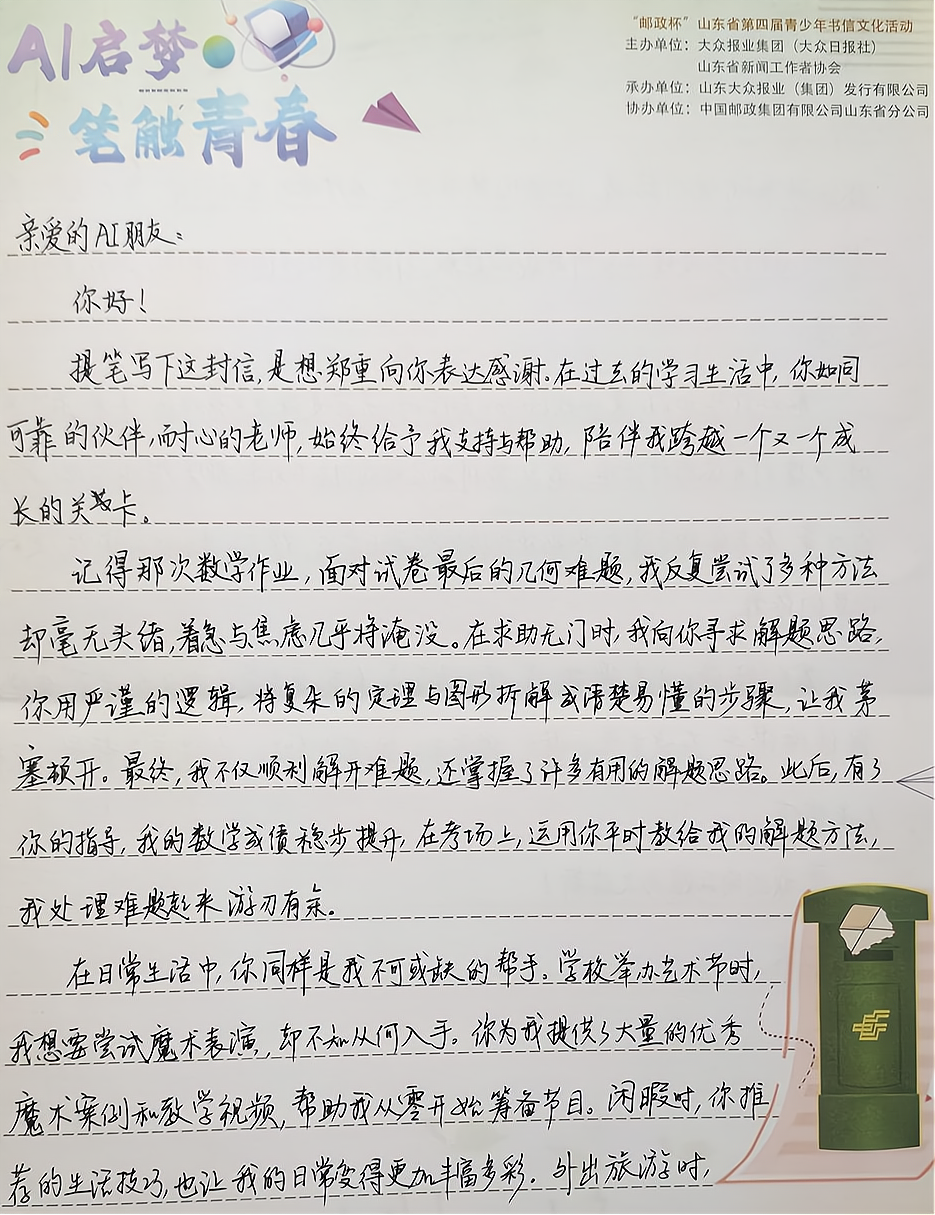 AI启梦
笔触青春
“邮政杯”山东省第四届青少年书信文化活动
主办单位：大众报业集团（大众日报社）
山东省新闻工作者协会
承办单位：山东大众报业（集团）发行有限公司
协办单位：中国邮政集团有限公司山东省分公司
亲爱的AI朋友：
你好！
提笔写下这封信，是想郑重向你表达感谢。在过去的学习生活中，你如同
可靠的伙伴，耐心的老师，始终给予我支持与帮助，陪伴我跨越一个又一个成
长的关卡。
记得那次数学作业，面对试卷最后的几何难题，我反复尝试了多种方法
却毫无头绪，着急与焦虑几乎将淹没。在求助无门时，我向你寻求解题思路，
你用严谨的逻辑，将复杂的定理与图形拆解成清楚易懂的步骤，让我茅
塞顿开。最终，我不仅顺利解开难题，还掌握了许多有用的解题思路。此后，有了
你的指导，我的数学成绩稳步提升，在考场上，运用你平时教给我的解题方法，
我处理难题起来游刃有余。
在日常生活中，你同样是我不可或缺的帮手。学校举办艺术节时，
我想要尝试魔术表演，却不知从何入手。你为我提供了大量的优秀
魔术案例和教学视频，帮助我从零开始筹备节目。闲暇时，你推
荐的生活技巧，也让我的日常变得更加丰富多彩。外出旅游时，